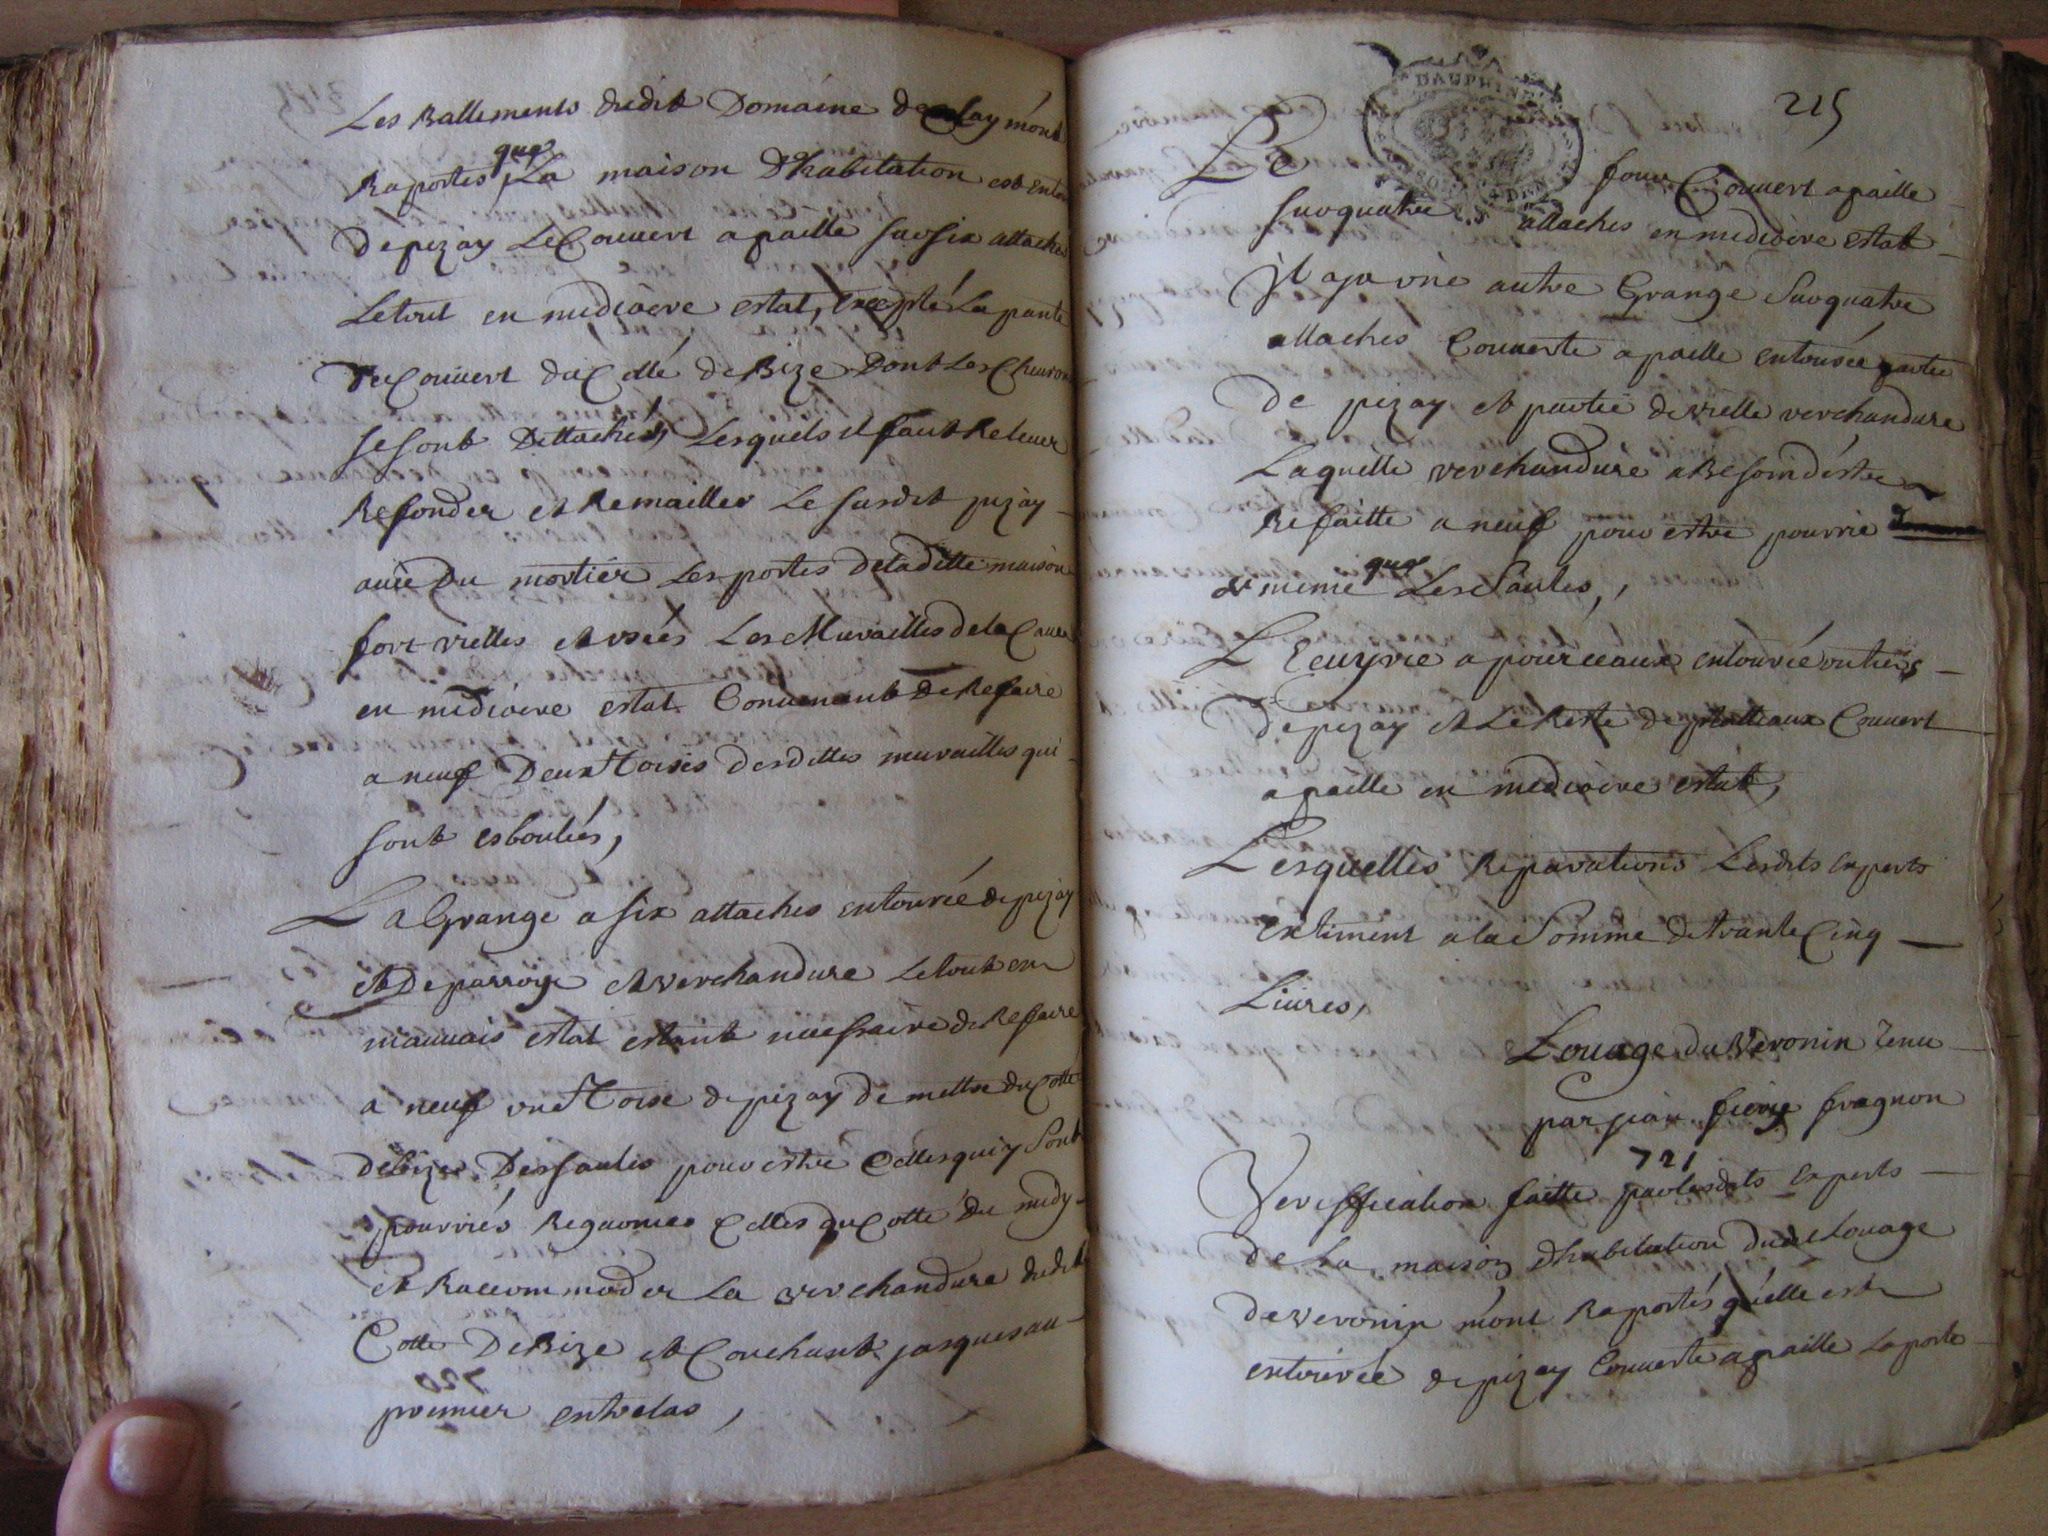 Les Battiments dudit Domaine de Claymont
Raportes que La maison D'habitation est entou
de pizay Le Couuert a paille sur six attaches
Le tout en mediocre estat, Excepté La pante
du Couuert du Cotté de Bize Dont Les Cheurons
se sont Dettachés, Lesquels il faut Releuer
Refonder et Remailler Le susdit pizay
auec Du mortier Les portes de laditte maison
fort vielles et vsées Les Murailles de la Caue
en mediocre estat Conuenant de Refaire
a neuf Deux Toises desdittes murailles qui
sont esboulées,
La Grange a six attaches entourée de pizay
et De parroye et verchandure Le tout en
mauuais estat estant necessaire de Refaire
a neuf vne Toise de pizay De mettre du Cotté
de bize Des saules pour estre Celles qui y sont
pourriés Celles du Cotté du midy
et Raccommoder La verchandure dudit
Cotté De Bize et Couchant jusques au
premier entrelas,
720
215
DAUPHINE
Le four Couuert a paille
sur quatre attaches en mediocre estat
Il a ya vne autre Grange Sur quatre
attaches Couuerte a paille entourée partie
De pizay et partie de vielle verchandure
Laquelle verchandure a Besoin d'estre
Refaitte a neuf pour estre pourrie
de meme que Les Saules,,
L'Ecuyrie a pourceaux entourée vn tiers
De pizay et Le Reste de platteaux Couuert
a paille en mediocre estat,
Lesquelles Reparations Lesdits Experts
Estiment a la Somme de trante Cinq
Liures,
Louage du Veronin Tenu
par jean fragnon
721
Veriffication faitte par lesdits Experts
de La maison D'habitation dudit Louage
de Veronin m'ont Raportés qu'elle est
entourée de pizay Couuerte a paille La porte